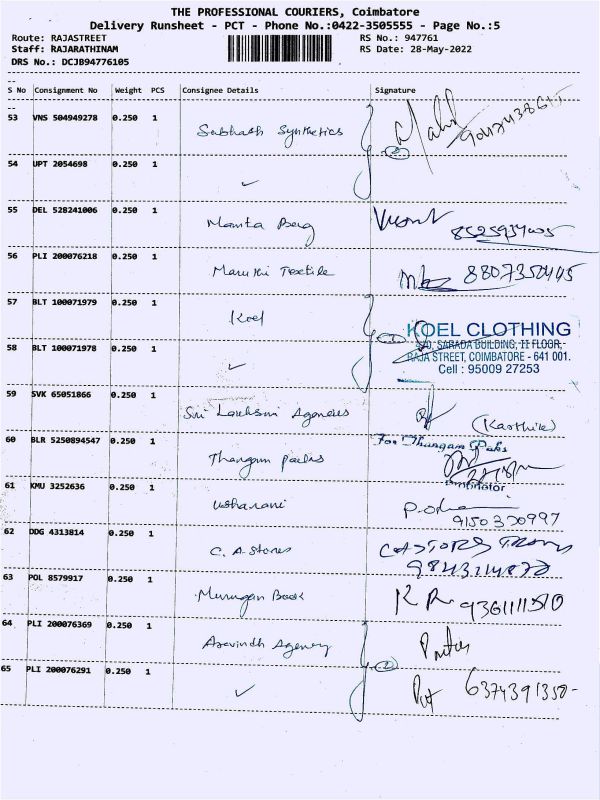 THE PROFESSIONAL COURIERS, Coimbatore
Delivery Runsheet - PCT - Phone No.:0422-3505555 - Page No.:5
Route: RAJASTREET RS No.: 947761
Staff: RAJARATHINAM RS Date: 28-May-2022
DRS No.: DCJB94776105
S No Consignment No Weight PCS Consignee Details Signature
53 VNS 504949278 0.250 1 Subhash Synthetics
54 UPT 2054698 0.250 1 ✓
55 DEL 528241006 0.250 1 Mamta Bag
56 PLI 200076218 0.250 1 Maruthi Textile
57 BLT 100071979 0.250 1 Koel
KOEL CLOTHING
SARADA BUILDING, II FLOOR,
RAJA STREET, COIMBATORE - 641 001.
Cell : 95009 27253
58 BLT 100071978 0.250 1 ✓
59 SVK 65051866 0.250 1 Sri Lakshmi Agencies (Karthik)
60 BLR 5250894547 0.250 1 Thangam paks For Thangam Paks
61 KMU 3252636 0.250 1 Usharani
9150320997
62 DDG 4313814 0.250 1 C. A. Stores
63 POL 8579917 0.250 1 Murugan Book K R
64 PLI 200076369 0.250 1 Aravindh Agency
65 PLI 200076291 0.250 1 ✓ 6374391358-